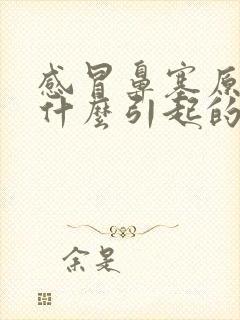 感冒鼻塞原
什麼引起的
余是